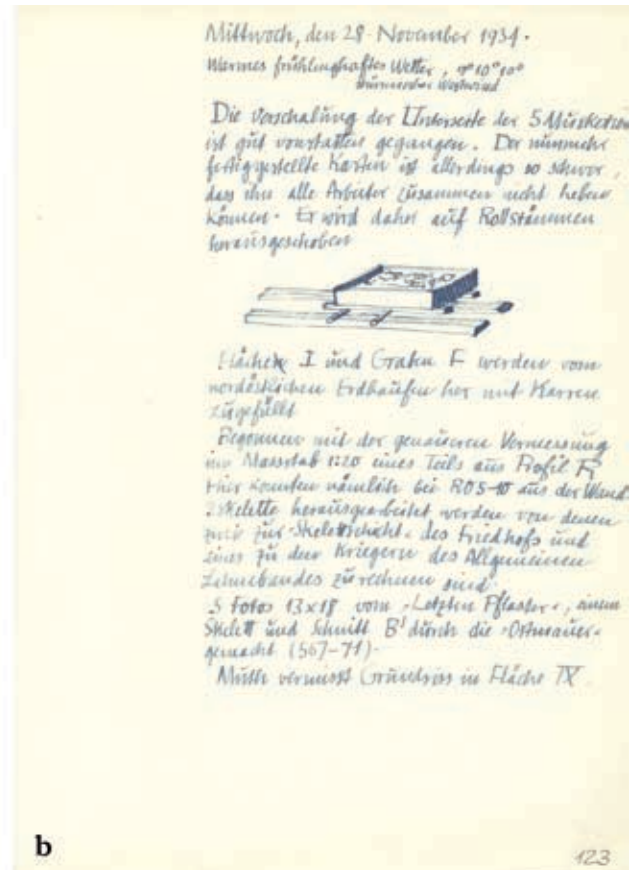 Mittwoch, den 28. November 1934.
Warmes frühlinghaftes Wetter, 7° 10° 10°
stürmischer Westwind
Die Verschalung der Unterseite der 5 Musketiere
ist gut vonstatten gegangen. Der nunmehr
fertiggestellte Kasten ist allerdings so schwer,
dass ihn alle Arbeiter zusammen nicht heben
können. Er wird daher auf Rollstämmen
herausgeschoben
Fläche I und Graben F werden vom
nordöstlichen Erdhaufen her mit Karren
zugefüllt
Begonnen mit der genaueren Vermessung
im Massstab 1:20 eines Teils aus Profil R
Hier konnten nämlich bei R05-10 aus der Wand
Skelette herausgearbeitet werden von denen
zur "Skelettschicht" des Friedhofs und
eines zu den Kriegern des Allgemeinen
zu rechnen sind.
5 Fotos 13x18 vom "Letzten Pflaster", einem
Skelett und Schnitt B' durch die "Ostmauer"
gemacht (567-71).
Muth vermisst Grundriss in Fläche IX.
b
123